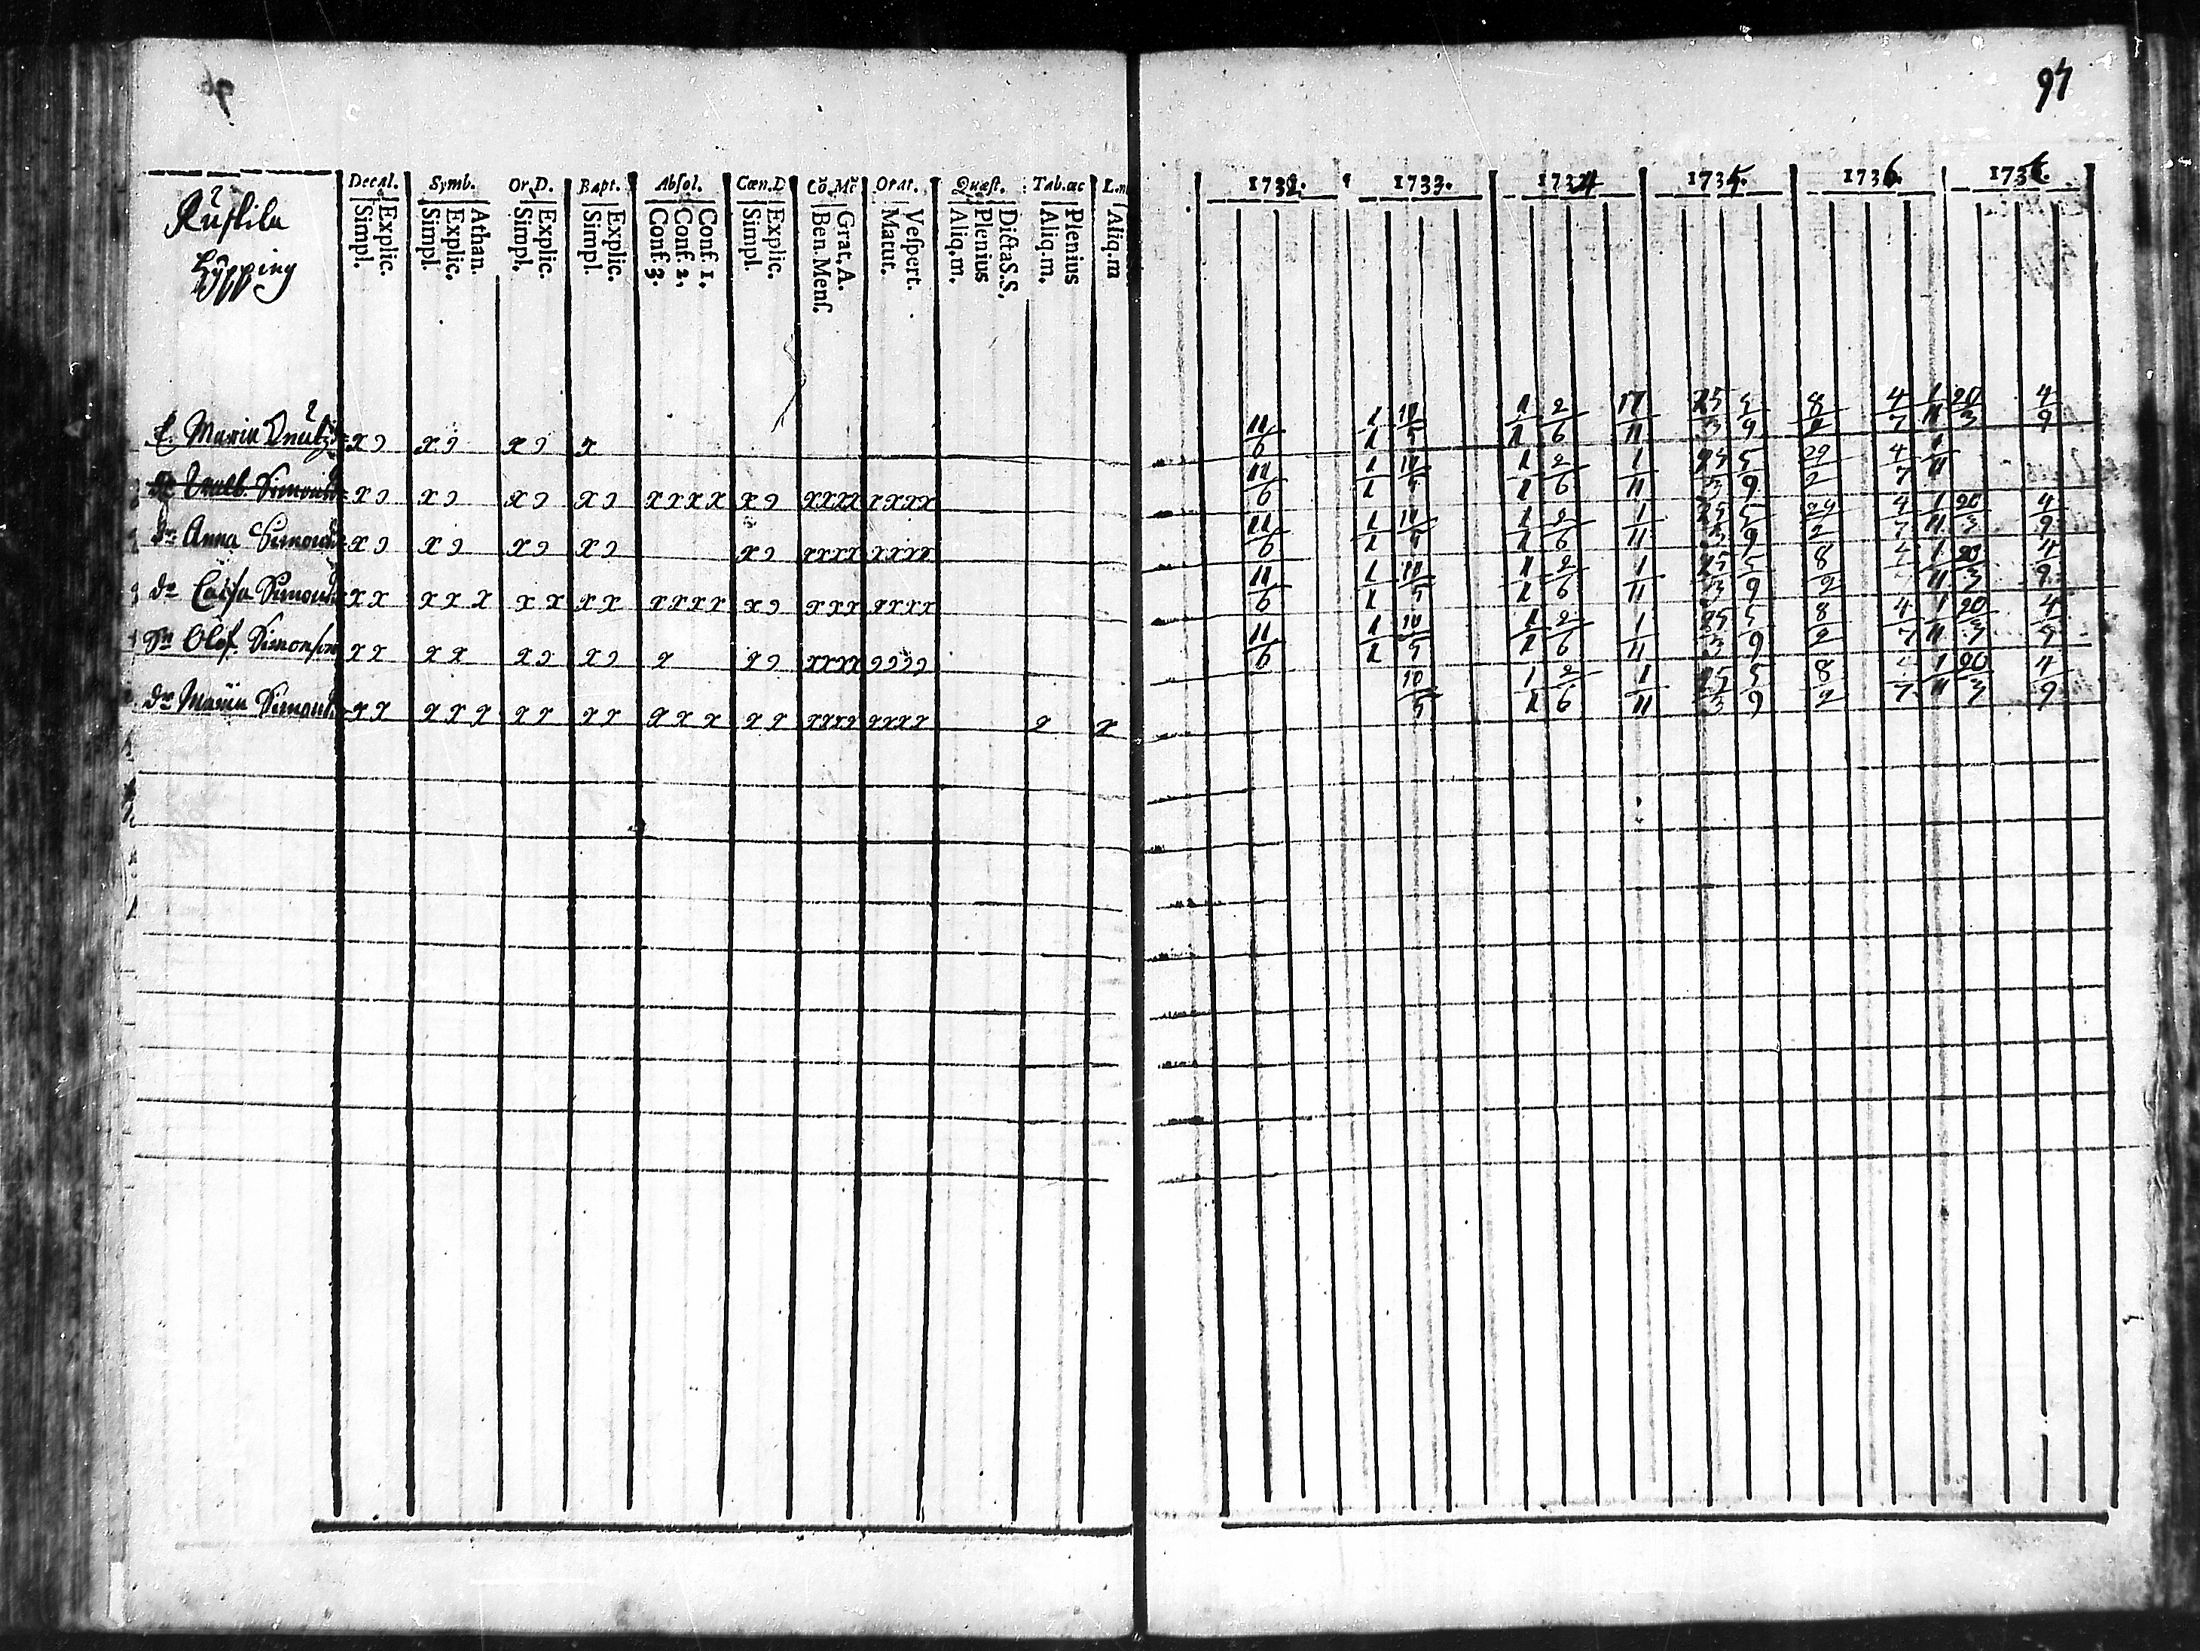 97
Decal. Symb. Or. D. Bapt. Absol. Cœn. D Cō. Mē Orat. Quæst. Tab. œc L. m
Simpl. Explic. Simpl. Explic. Athan. Simpl. Explic. Simpl. Explic. Conf. 3. Conf. 2. Conf. 1. Simpl. Explic. Ben. Menſ. Grat. A. Matut. Veſpert. Aliq. m. Plenius Dicta S. S. Aliq. m. Plenius Aliq. m
1732. 1733. 1734 1735. 1736. 1736.
Kyſkila
Hypping
Maria x 9 x 9 x 9 x 11/6 1/1 10/5 1/1 2/6 17/11 25/3 5/9 8/2 4/7 1/11 20/3 4/9
Walb. Simonsd x 9 x 9 x 9 x 9 x x x x x 9 x x x x x x x x 11/6 1/1 10/5 1/1 2/6 1/11 25/3 5/9 29/2 4/7 1/11
dr Anna Simonsd x 9 x 9 x 9 x 9 x 9 x x x x x x x x 11/6 1/1 10/5 1/1 2/6 1/11 25/3 5/9 29/2 4/7 1/11 20/3 4/9
dr Caisa Simonsd x x x x x x x x x x x x x x 9 x x x x x x x 11/6 1/1 10/5 1/1 2/6 1/11 25/3 5/9 8/2 4/7 1/11 20/3 4/9
Sn Olof Simonſon x x x x x 9 x 9 x x 9 x x x x 9 9 9 9 11/6 1/1 10/5 1/1 2/6 1/11 25/3 5/9 8/2 4/7 1/11 20/3 4/9
dr Maria Simonsd x x x x x x x x x x x x x x x x x x x x x x x x 10/5 1/1 2/6 1/11 25/3 5/9 8/2 4/7 1/11 20/3 4/9